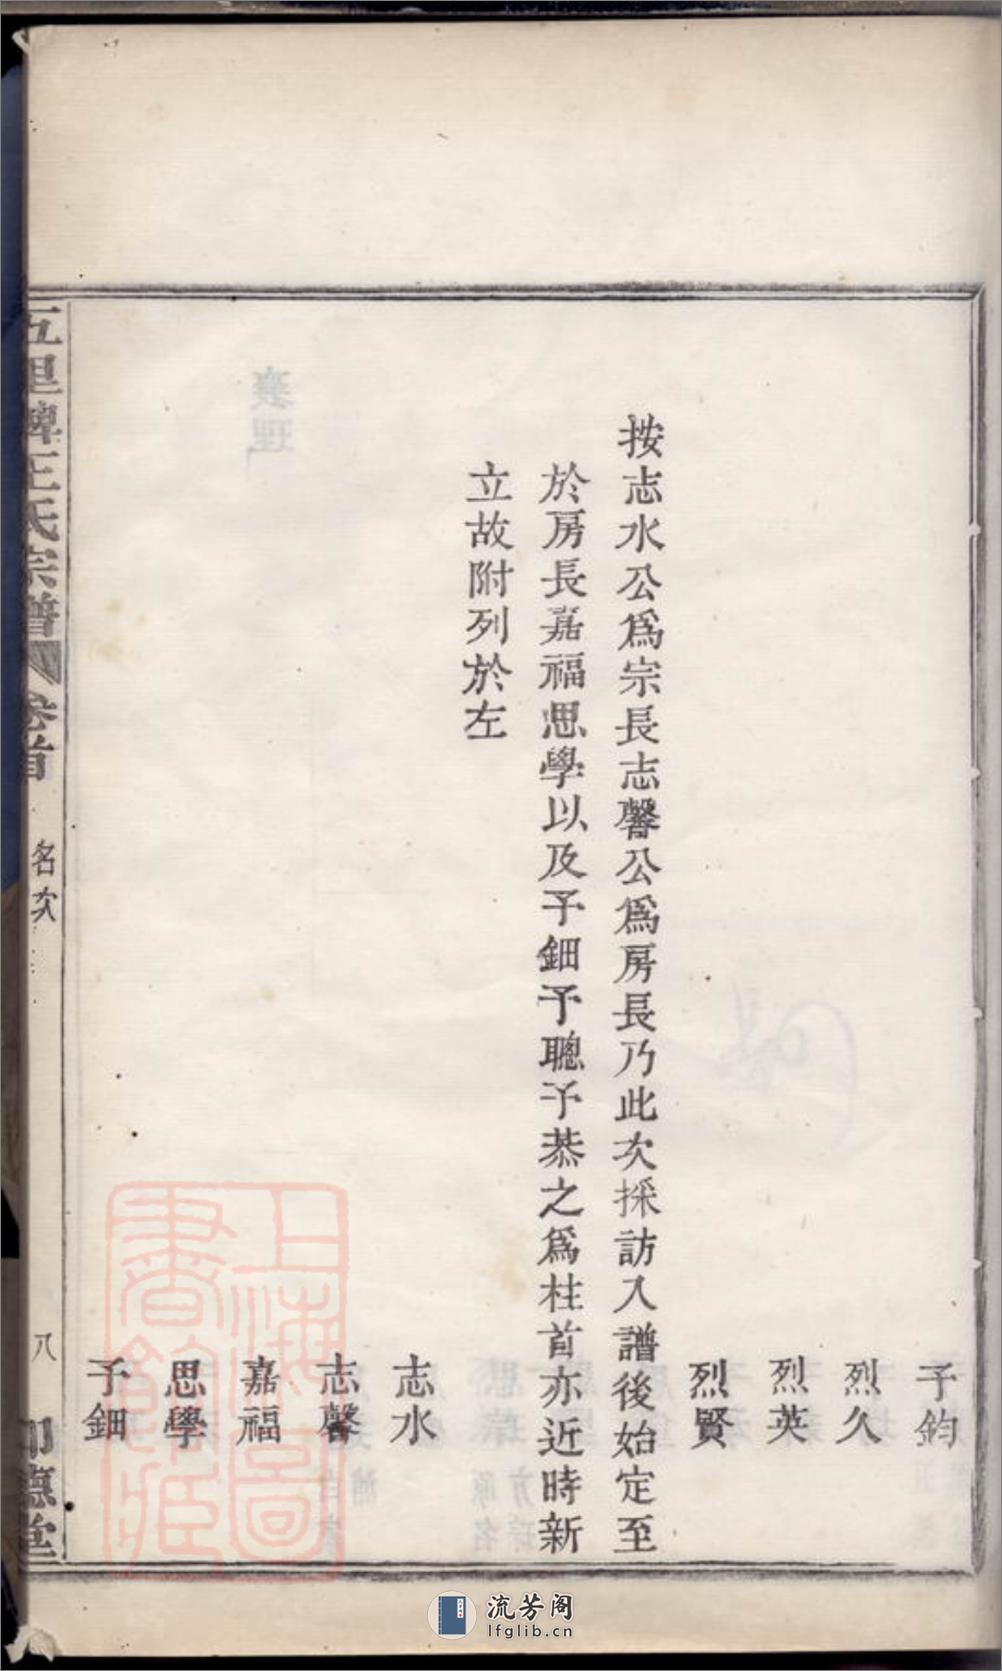 予鈞
烈久
烈英
烈賢
按志水公爲宗長志馨公爲房長乃此次採訪入譜後始定至
於房長嘉福思學以及予鈿予聰予恭之爲柱首亦近時新
立故附列於左
志水
志馨
嘉福
思學
予鈿
五里牌王氏宗譜
卷首
名次
八
上海圖書館藏
流芳阁
lfglib.cn